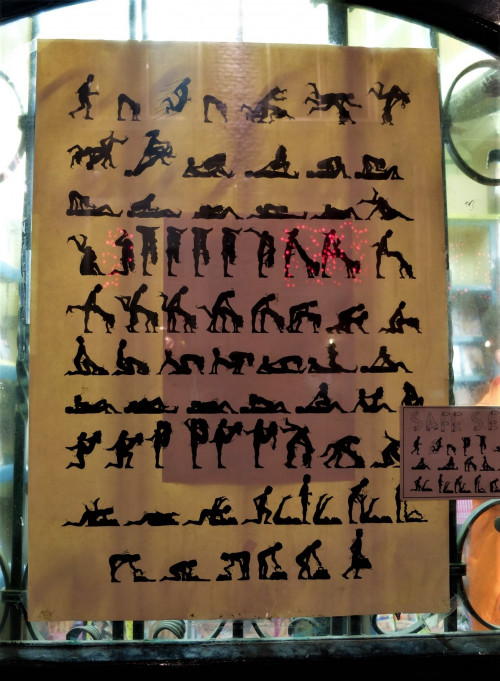 SAFE SE